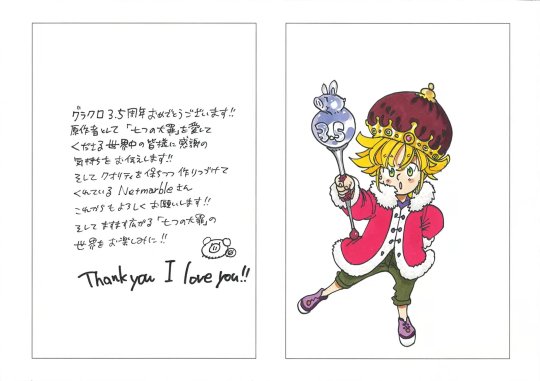 グラクロ3.5周年おめでとうございます!!
原作者として「七つの大罪」を愛して
くださる世界中の皆様に感謝の
気持ちをお伝えします!!
そしてクオリティを保ちつつ作りつづけて
くれているNetmarbleさん
これからもよろしくお願いします!!
そしてますます広がる「七つの大罪」の
世界をお楽しみに!!
Thank you I love you!!
3.5